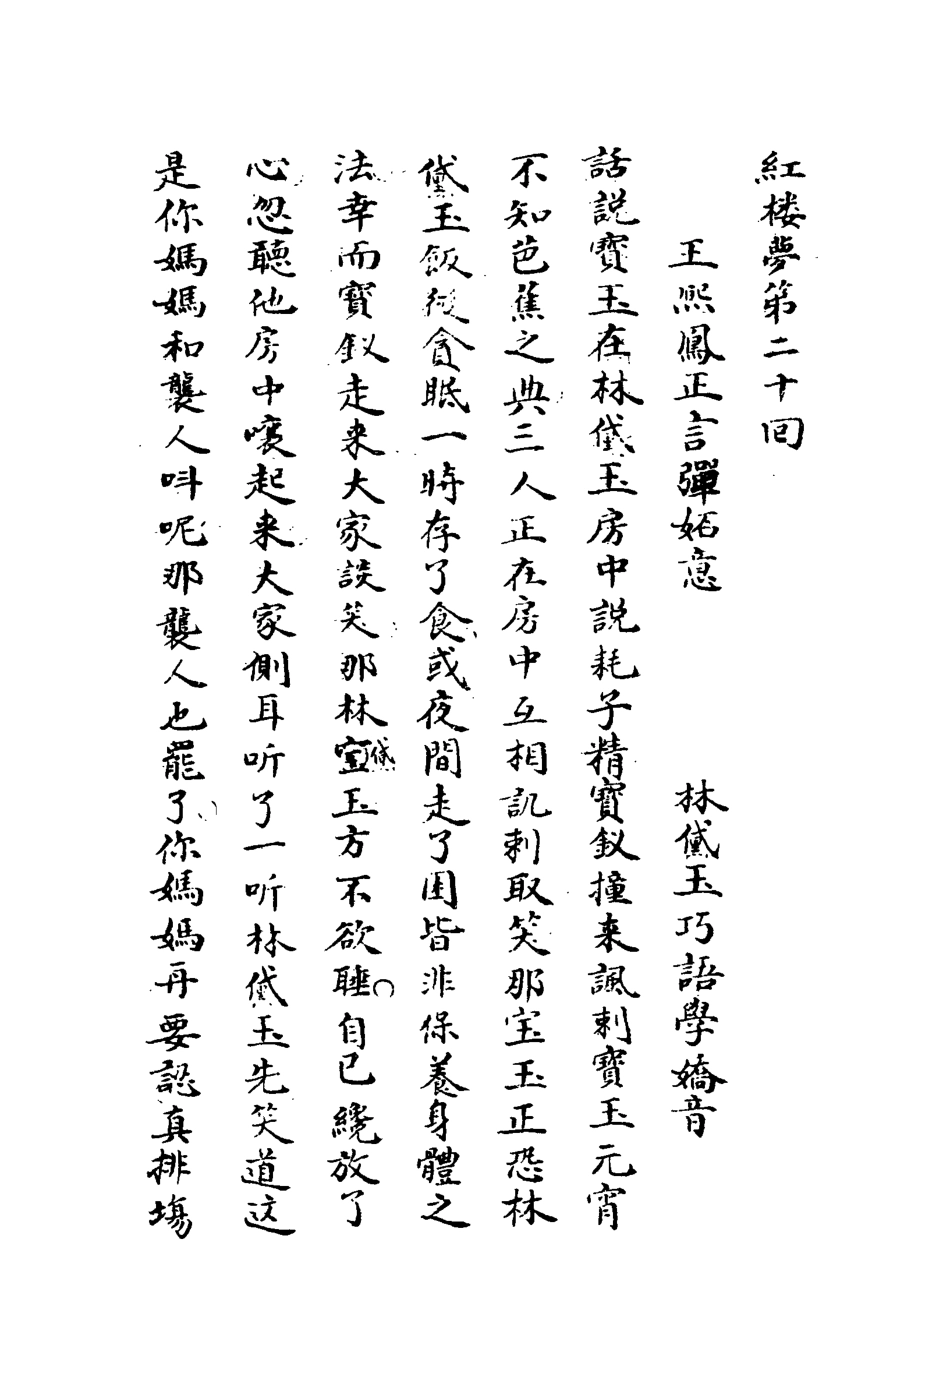 紅楼夢第二十回
王熈鳳正言彈妬意　林黛玉巧語學嬌音
話説寶玉在林黛玉房中説耗子精寶釵撞来諷刺寶玉元宵
不知芭蕉之典三人正在房中互相譏刺取笑那宝玉正恐林
黛玉飯後貪眠一時存了食或夜間走了困皆非保養身體之
法幸而寶釵走来大家談笑那林黛玉方不欲睡自己纔放了
心忽聽他房中嚷起来大家側耳听了一听林黛玉先笑道这
是你媽媽和襲人呌呢那襲人也罷了你媽媽再要認真排塲